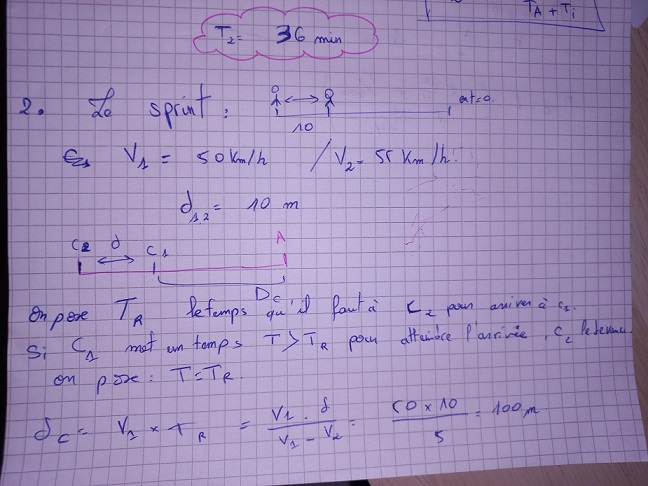 TA + Ti
T2 = 36 min
2. Le sprint :
10
V1 = 50 Km/h / V2 = 55 Km/h
d12 = 10 m
C2 d C1 A
DC
On pose TR le temps qu'il faut à C2 pour arriver à C1.
Si C1 met un temps T > TR pour atteindre l'arrivée, C2 le
on pose : T = TR.
dC = V1 × TR = V1 . d / V1 - V2 = 50 × 10 / 5 = 100 m